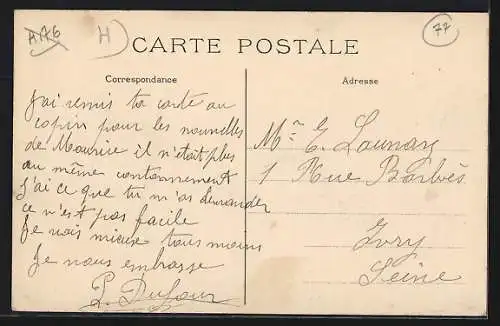 A76
H
77
CARTE POSTALE
Correspondance
Adresse
J'ai remis ta carte au
copin pour les nouvelles
de Maurice il n'etait plus
au même cantonnement
J'ai ce que tu m'as demander
ce n'est pas facile
Je vais mieux tous moins
Je vous embrasse
P. Dufour
Mr E. Launay
1 Rue Barbès
Ivry
Seine